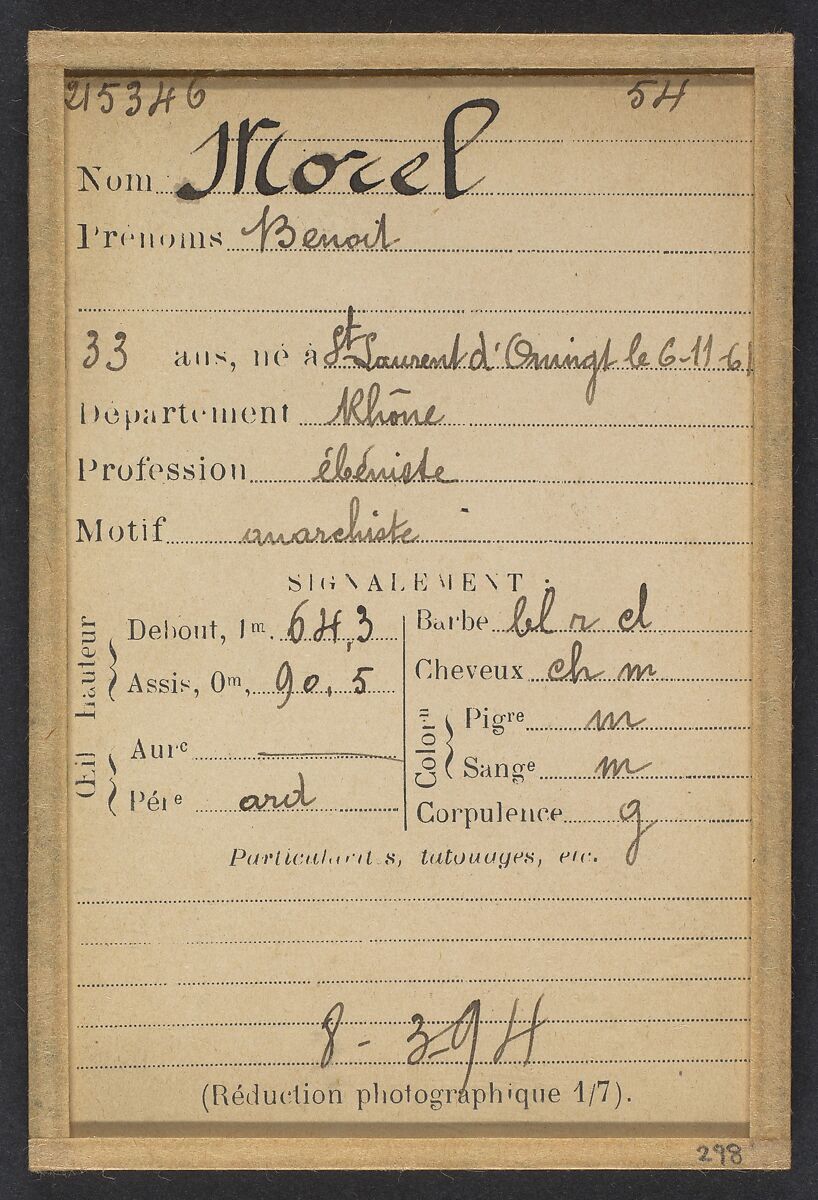 215346 54
Nom Morel
Prénoms Benoit
33 ans, né à St Laurent d'Omingt le 6-11-61
Département Rhône
Profession ébéniste
Motif anarchiste
SIGNALEMENT.
Œil hauteur
Debout, 1m. 64,3
Assis, 0m, 90,5
Aurc
Pére ard
Barbe bl r cl
Cheveux ch m
Colorn
Pigre m
Sange m
Corpulence g
Particularités, tatouages, etc.
8-3-94
(Réduction photographique 1/7).
298